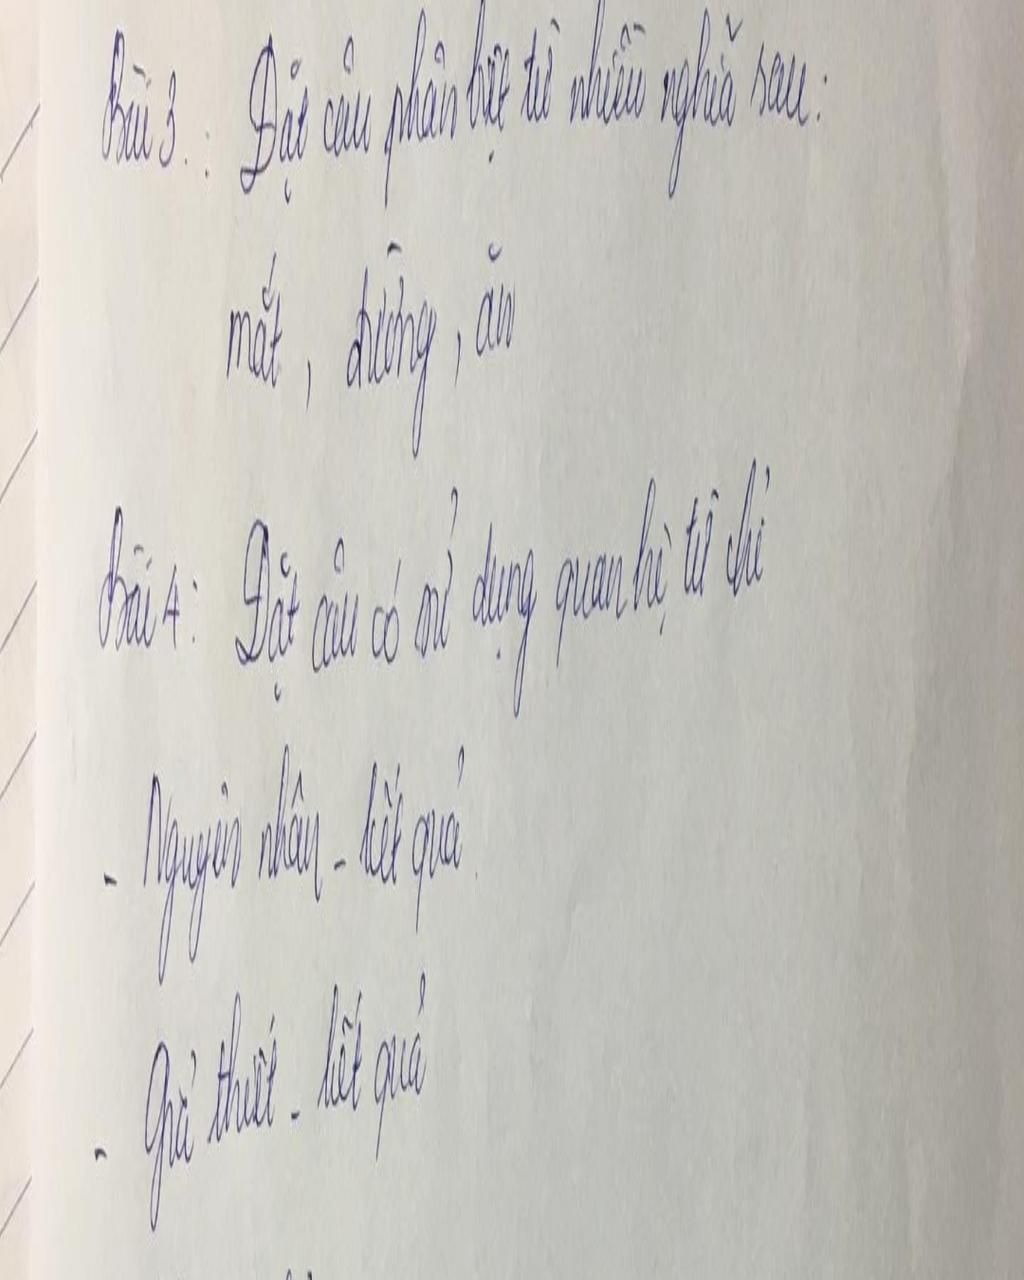 Bài 3: Đặt câu phân biệt từ nhiều nghĩa sau:
mắt, đường, ăn
Bài 4: Đặt câu có sử dụng quan hệ từ chỉ
- Nguyên nhân - kết quả
- Giả thiết - kết quả